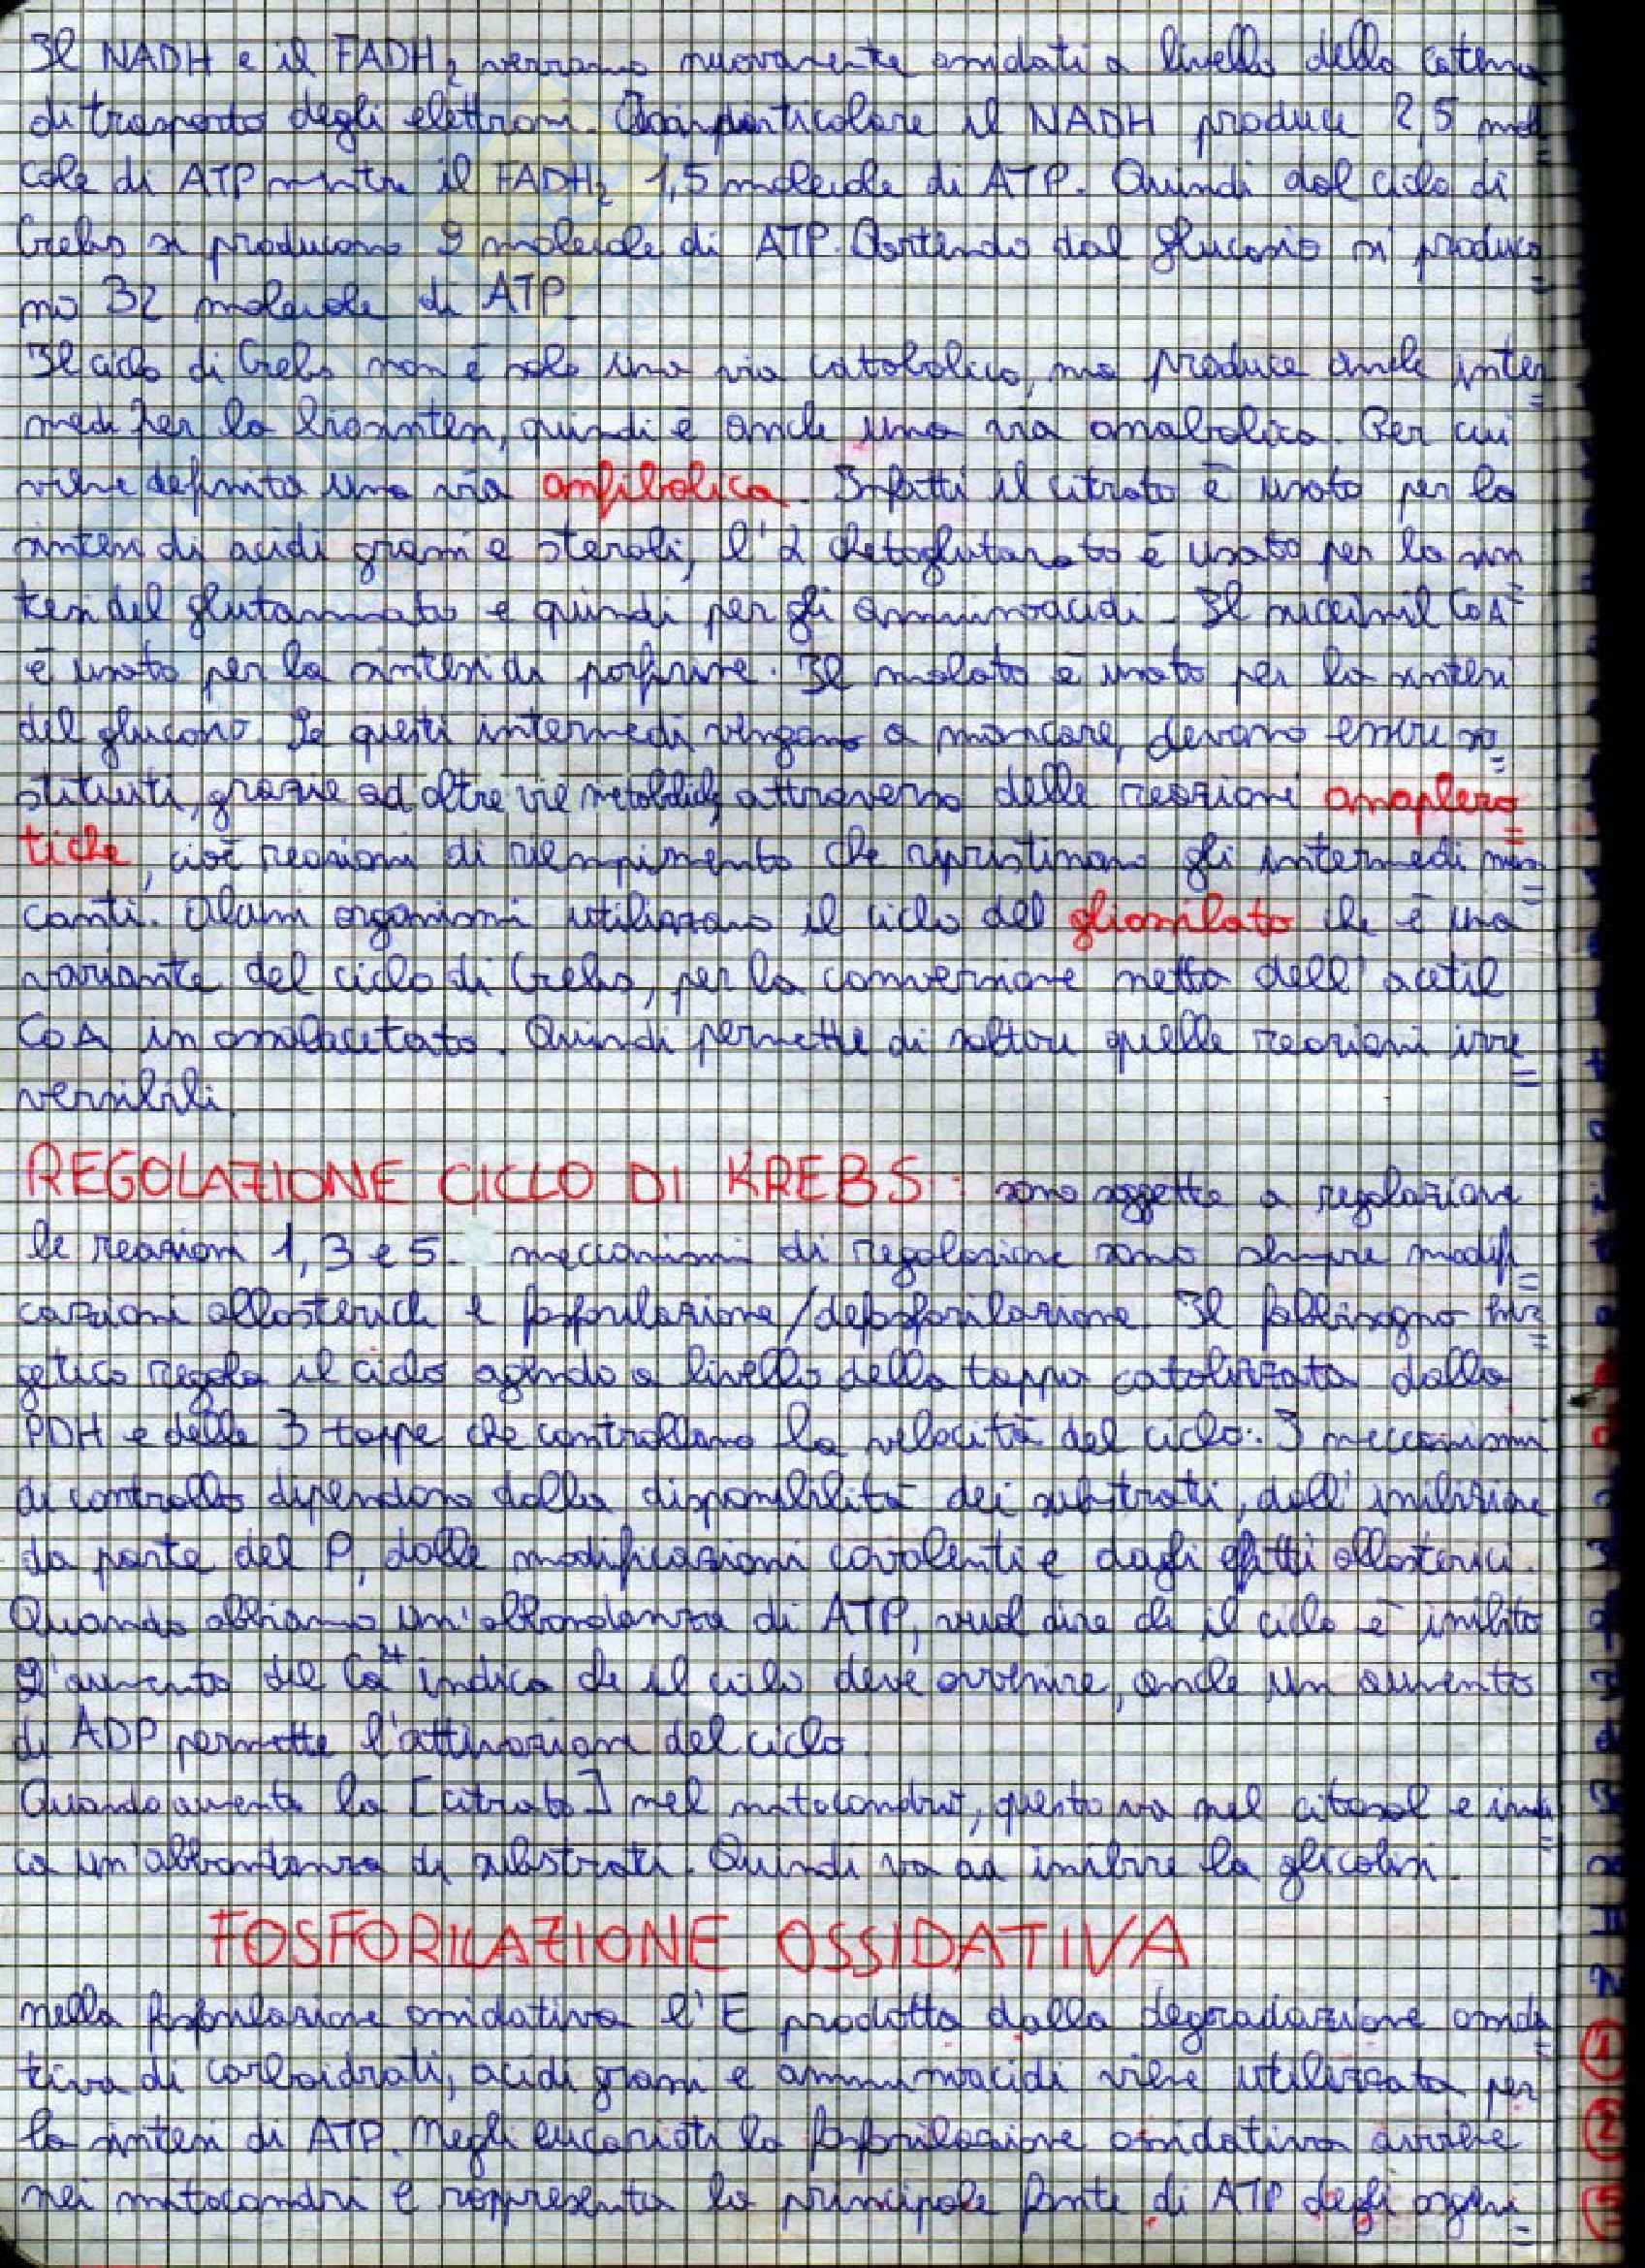 Il NADH e il FADH2 verranno nuovamente ossidati a livello della catena
di trasporto degli elettroni. In particolare il NADH produce 2,5 mole
cole di ATP mentre il FADH2 1,5 molecole di ATP. Quindi dal ciclo di
Crebs si producono 9 molecole di ATP. Partendo dal glucosio si produco
no 32 molecole di ATP
Il ciclo di Crebs non è solo una via catabolica, ma produce anche inter
medi per la biosintesi, quindi è anche una via anabolica. Per cui
viene definita una via anfibolica. Infatti il citrato è usato per la
sintesi di acidi grassi e steroli, l'α chetoglutarato è usato per la sin
tesi del glutammato e quindi per gli amminoacidi. Il succinil CoA
è usato per la sintesi di porfirine. Il malato è usato per la sintesi
del glucosio. Se questi intermedi vengono a mancare, devono essere so
stituiti, grazie ad altre vie metaboliche attraverso delle reazioni anaplero
tiche, cioè reazioni di riempimento che ripristinano gli intermedi man
canti. Alcuni organismi utilizzano il ciclo del gliossilato che è una
variante del ciclo di Crebs, per la conversione netta dell'acetil
CoA in ossalacetato. Quindi permette di saltare quelle reazioni irre
versibili.
REGOLAZIONE CICLO DI KREBS: sono soggette a regolazione
le reazioni 1, 3 e 5. meccanismi di regolazione sono sempre modifi
cazioni allosteriche e fosforilazione/defosforilazione. Il fabbisogno ener
getico regola il ciclo agendo a livello della tappa catalizzata dalla
PDH e delle 3 tappe che controllano la velocità del ciclo. I meccanismi
di controllo dipendono dalla disponibilità dei substrati, dall'inibizione
da parte del P, dalle modificazioni covalenti e dagli effetti allosterici.
Quando abbiamo un'abbondanza di ATP, vuol dire che il ciclo è inibito
L'aumento del Ca2+ indica che il ciclo deve avvenire, anche un aumento
di ADP permette l'attivazione del ciclo.
Quando aumenta la [citrato] nel mitocondrio, questo va nel citosol e indi
ca un'abbondanza di substrati. Quindi va ad inibire la glicolisi.
FOSFORILAZIONE OSSIDATIVA
nella fosforilazione ossidativa l'E prodotta dalla degradazione ossida
tiva di carboidrati, acidi grassi e amminoacidi viene utilizzata per
la sintesi di ATP. Negli eucarioti la fosforilazione ossidativa avviene
nei mitocondri e rappresenta la principale fonte di ATP degli organi